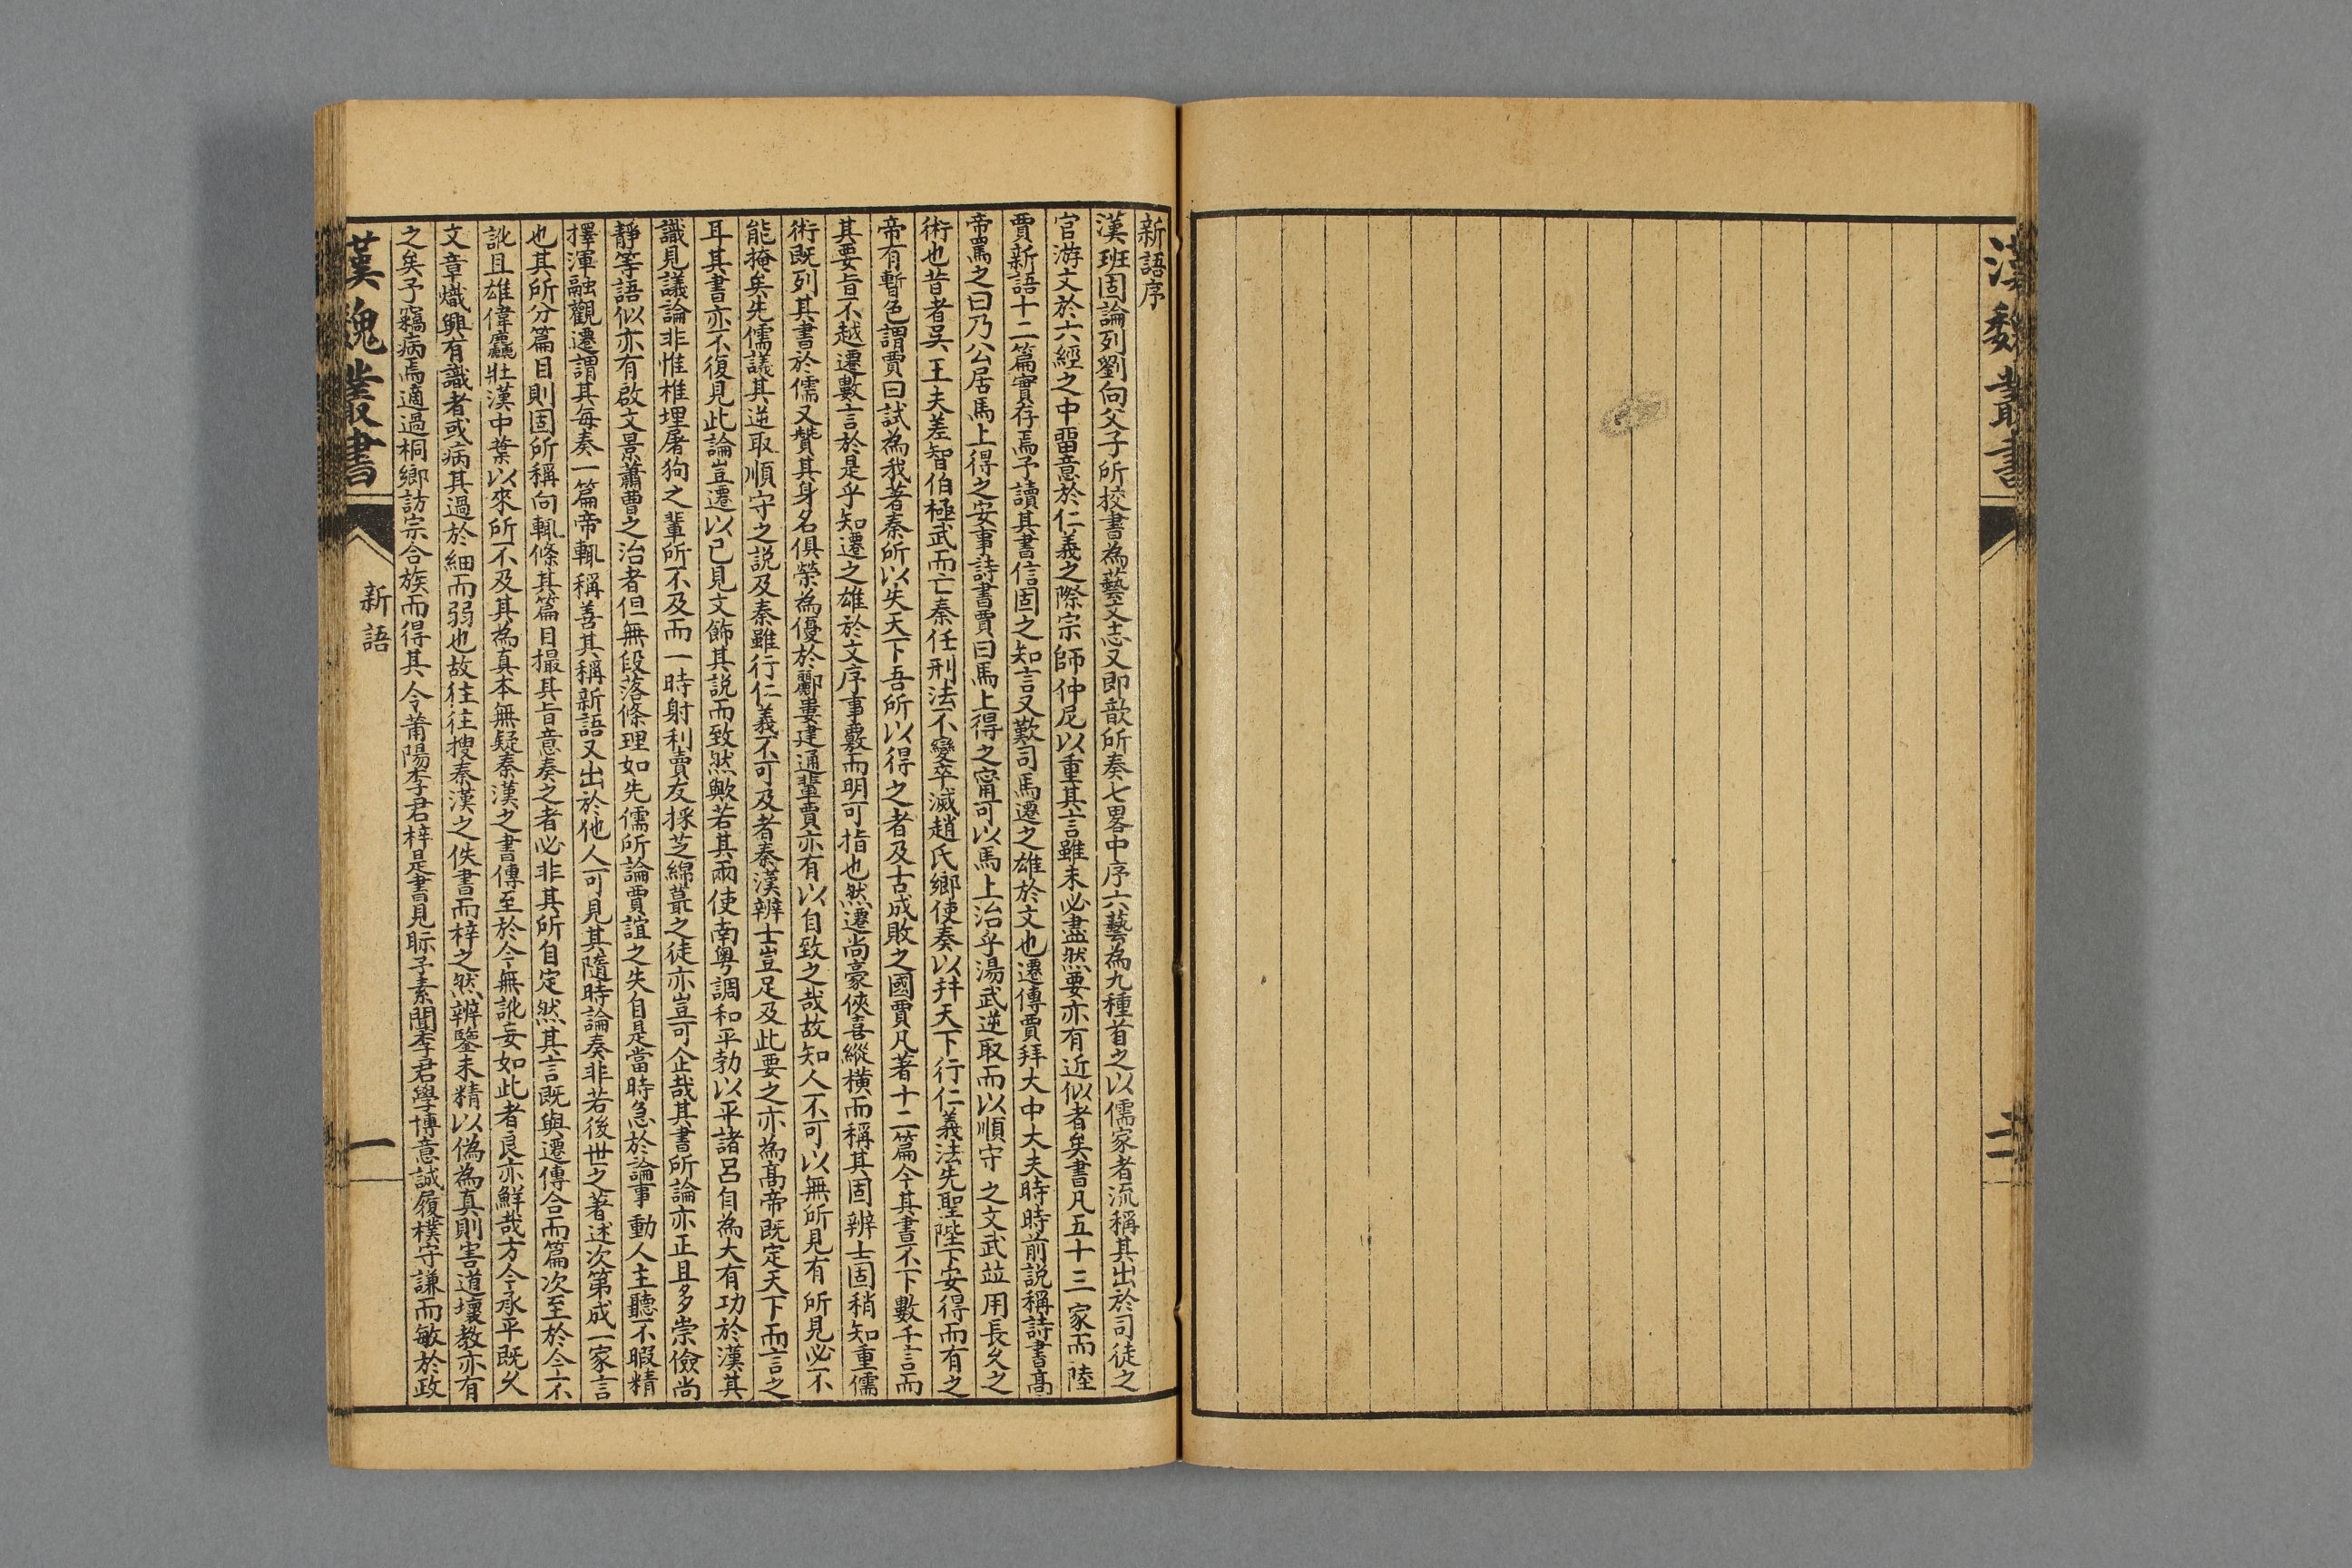 漢魏叢書
二
新語序
漢班固論列劉向父子所校書為藝文志又即歆所奏七畧中序六藝為九種首之以儒家者流稱其出於司徒之
官游文於六經之中畱意於仁義之際宗師仲尼以重其言雖未必盡然要亦有近似者矣書凡五十三家而陸
賈新語十二篇實存焉予讀其書信固之知言又歎司馬遷之雄於文也遷傳賈拜大中大夫時時前説稱詩書高
帝罵之曰乃公居馬上得之安事詩書賈曰馬上得之寗可以馬上治乎湯武逆取而以順守之文武竝用長久之
術也昔者吳王夫差智伯極武而亡秦任刑法不變卒滅趙氏鄉使秦以并天下行仁義法先聖陛下安得而有之
帝有暫色謂賈曰試為我著秦所以失天下吾所以得之者及古成敗之國賈凡著十二篇今其書不下數千言而
其要旨不越遷數言於是乎知遷之雄於文序事覈而明可指也然遷尚豪俠喜縱横而稱其固辨士固稍知重儒
術既列其書於儒又贊其身名俱榮為優於酈婁建通輩賈亦有以自致之哉故知人不可以無所見有所見必不
能掩矣先儒議其逆取順守之説及秦雖行仁義不可及者秦漢辨士豈足及此要之亦為高帝既定天下而言之
耳其書亦不復見此論豈遷以已見文飾其説而致然歟若其兩使南粤調和平勃以平諸呂自為大有功於漢其
識見議論非惟椎埋屠狗之輩所不及而一時射利賣友採芝綿蕞之徒亦豈可企哉其書所論亦正且多崇儉尚
靜等語似亦有啟文景蕭曹之治者但無段落條理如先儒所論賈誼之失自是當時急於論事動人主聽不暇精
擇渾融觀遷謂其每奏一篇帝輒稱善其稱新語又出於他人可見其隨時論奏非若後世之著述次第成一家言
也其所分篇目則固所稱向輒條其篇目撮其旨意奏之者必非其所自定然其言既與遷傳合而篇次至於今不
訛且雄偉麤壯漢中葉以來所不及其為真本無疑秦漢之書傳至於今無訛妄如此者良亦鮮哉方今承平既久
文章熾興有識者或病其過於細而弱也故往往搜秦漢之佚書而梓之然辨鑒未精以偽為真則害道壞教亦有
之矣予竊病焉適過桐鄉訪宗合族而得其令莆陽李君梓是書見眎予素聞李君學博意誠履樸守謙而敏於政
漢魏叢書
新語
一